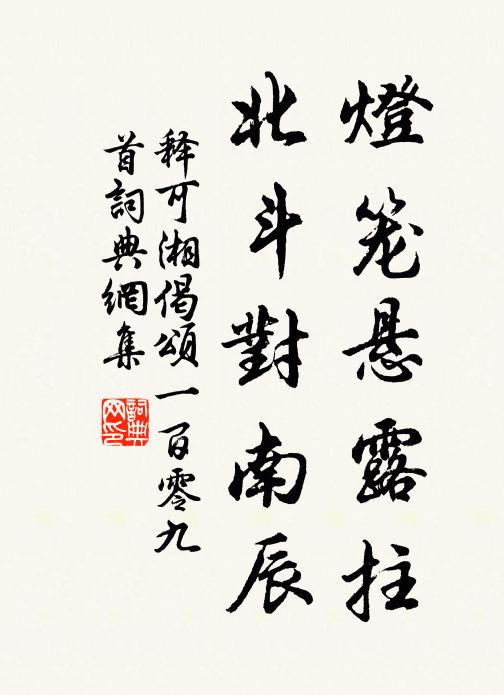 燈笼悬露柱
北斗對南辰
释可湘偈頌一百零九
首詞典網集
詞典
网印